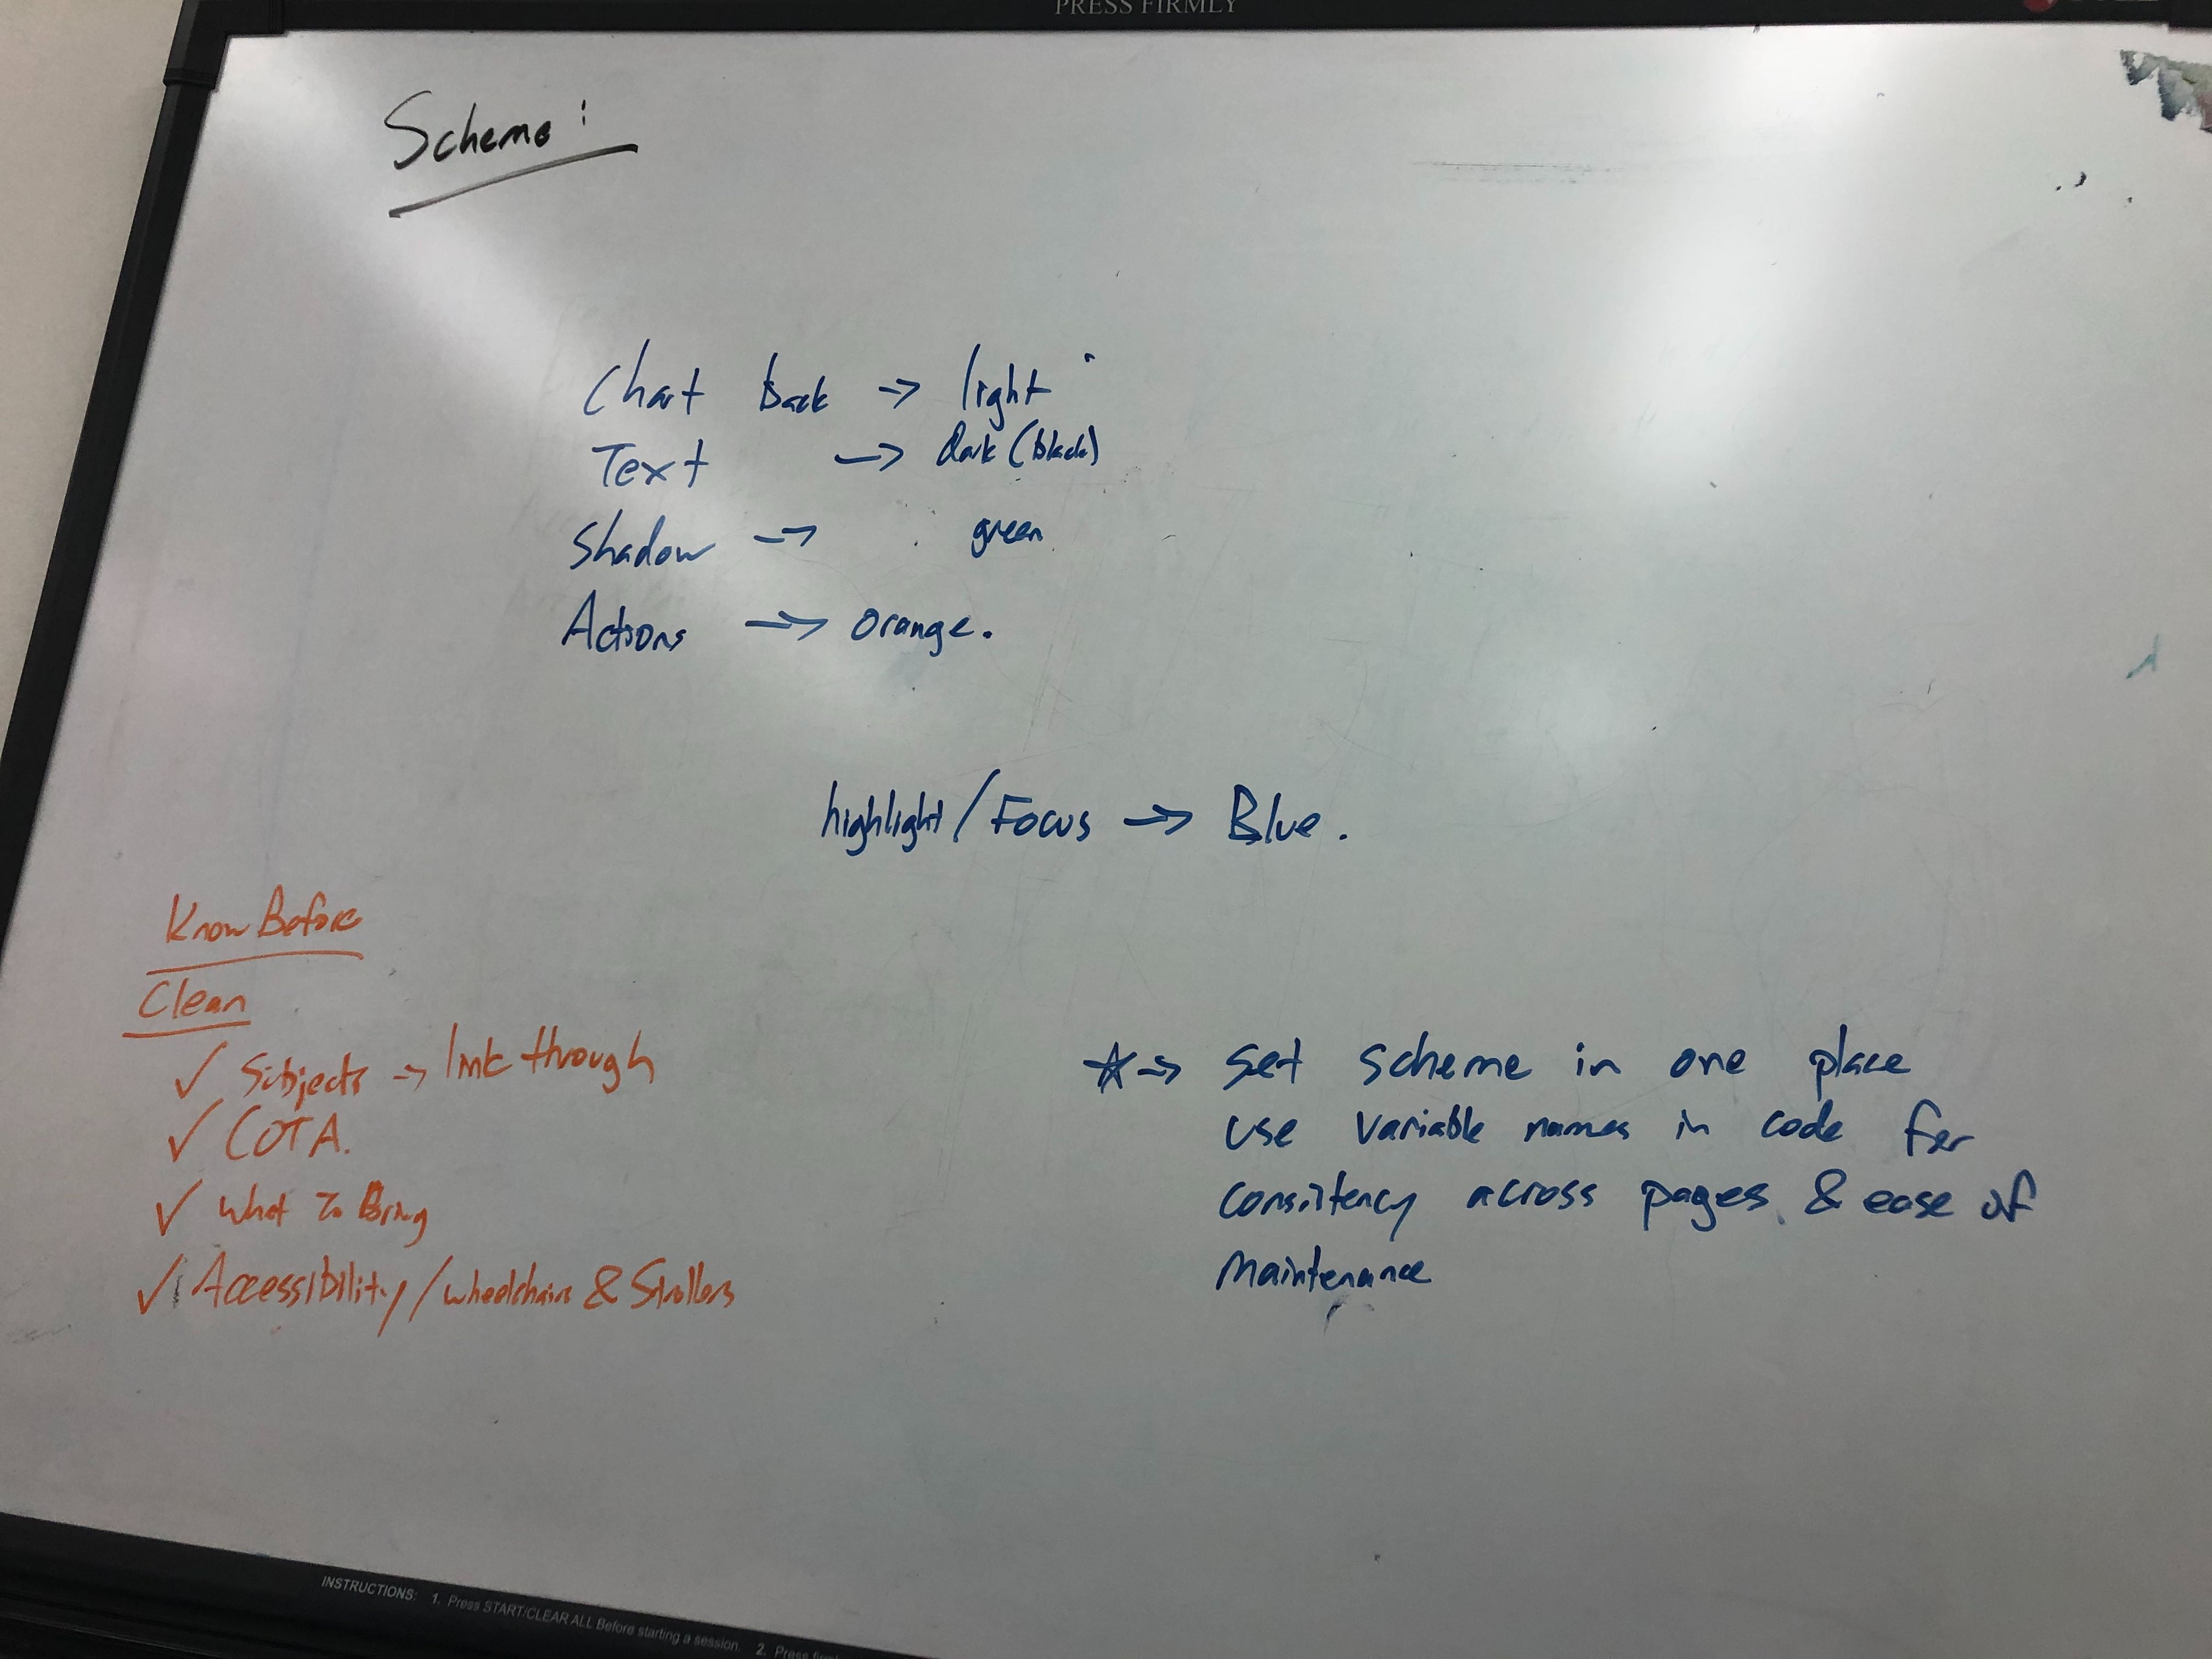 PRESS FIRMLY
Scheme:
Chart back → light
Text → dark (black)
Shadow → green
Actions → orange.
highlight/Focus → Blue.
Know Before
Clean
✓ Subjects → link through
✓ COTA.
✓ What to Bring
✓ Accessibility/wheelchairs & Strollers
☆→ Set scheme in one place
use variable names in code for
consistency across pages & ease of
maintenance
INSTRUCTIONS: 1. Press START/CLEAR ALL Before starting a session. 2. Press